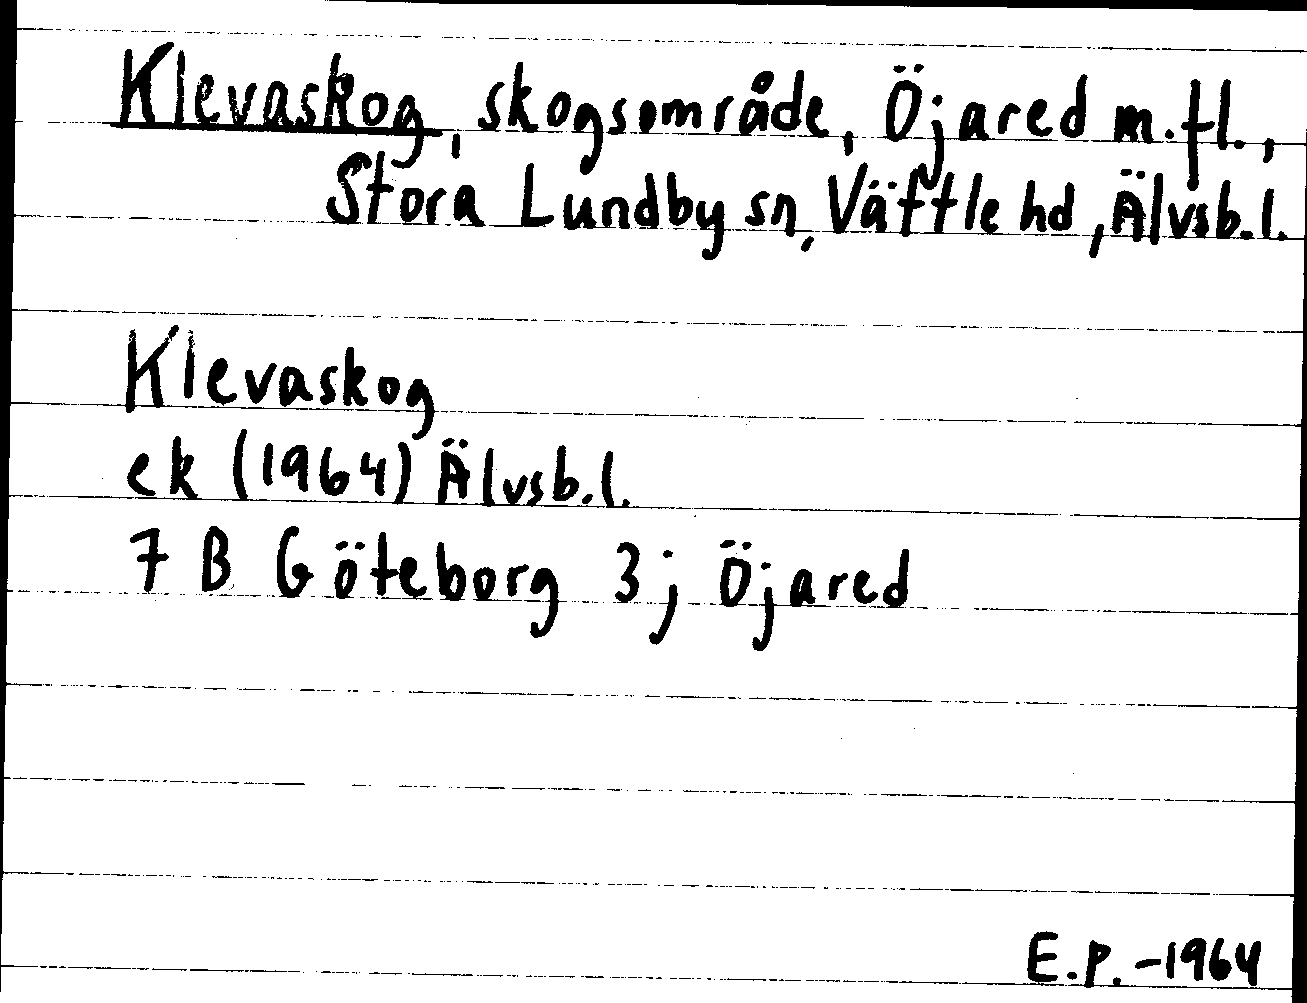 Klevaskog, skogsområde, Öjared m.fl.,
Stora Lundby sn, Vättle hd, Älvsb.l.
Klevaskog
ek (1964) Älvsb.l.
7 B Göteborg 3j Öjared
E.P.-1964